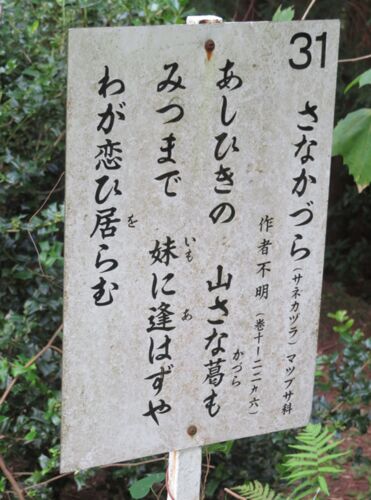 31
さなかづら(サネカヅラ)マツブサ科
作者不明(巻十ー二二九六)
あしひきの 山さな葛も
かづら
みつまで 妹に逢はずや
いも あ
わが恋ひ居らむ
を